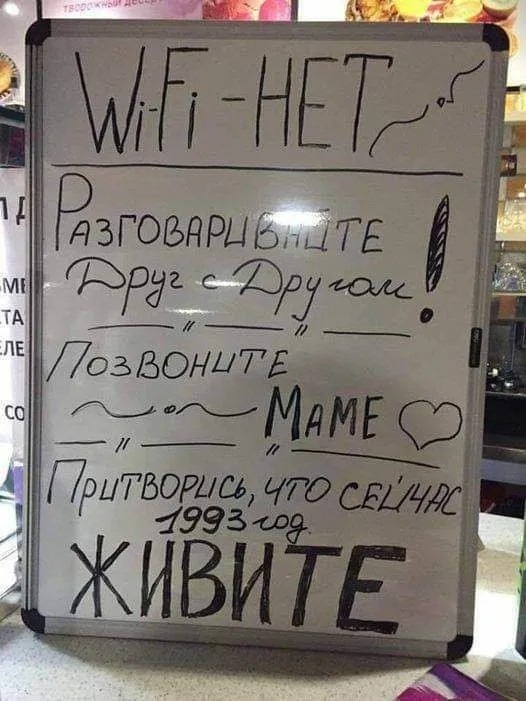 творожный десерт
WiFi - НЕТ
Разговаривайте
Друг с Другом!
Позвоните
Маме
Притворись, что сейчас
1993 год.
ЖИВИТЕ